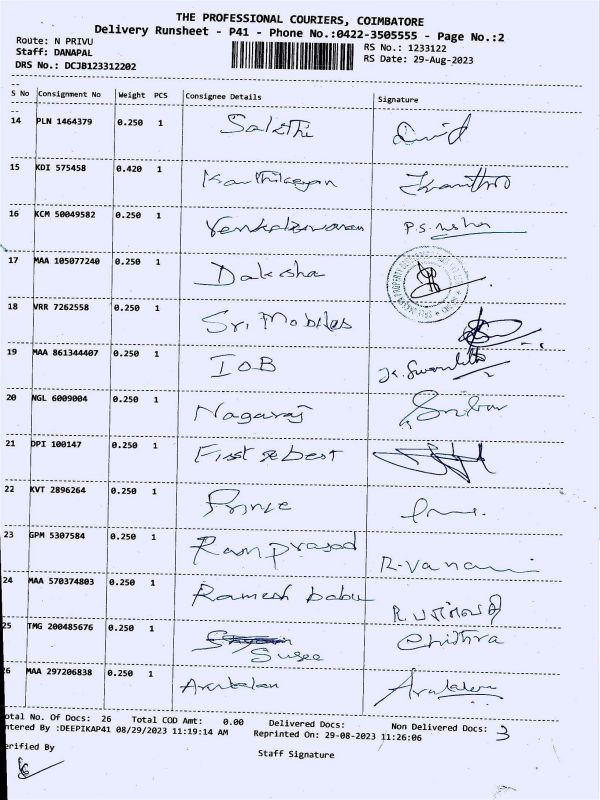 THE PROFESSIONAL COURIERS, COIMBATORE
Delivery Runsheet - P41 - Phone No.:0422-3505555 - Page No.:2
Route: N PRIVU RS No.: 1233122
Staff: DANAPAL RS Date: 29-Aug-2023
DRS No.: DCJB123312202
S No Consignment No Weight PCS Consignee Details Signature
14 PLN 1464379 0.250 1 Sakthi David
15 KDI 575458 0.420 1 Karthikeyan
16 KCM 50049582 0.250 1 Venkateswaran P.S. Usha
17 MAA 105077240 0.250 1 Daksha
18 VRR 7262558 0.250 1 Sri Mobiles
19 MAA 861344407 0.250 1 IOB
20 NGL 6009004 0.250 1 Nagaraj
21 DPI 100147 0.250 1 First & best
22 KVT 2896264 0.250 1 Prince
23 GPM 5307584 0.250 1 Ramprasad R-Vanani
24 MAA 570374803 0.250 1 Ramesh babu
25 TMG 200485676 0.250 1 Susee Chithra
26 MAA 297206838 0.250 1
otal No. Of Docs: 26 Total COD Amt: 0.00 Delivered Docs: Non Delivered Docs: 3
ntered By :DEEPIKAP41 08/29/2023 11:19:14 AM Reprinted On: 29-08-2023 11:26:06
erified By Staff Signature